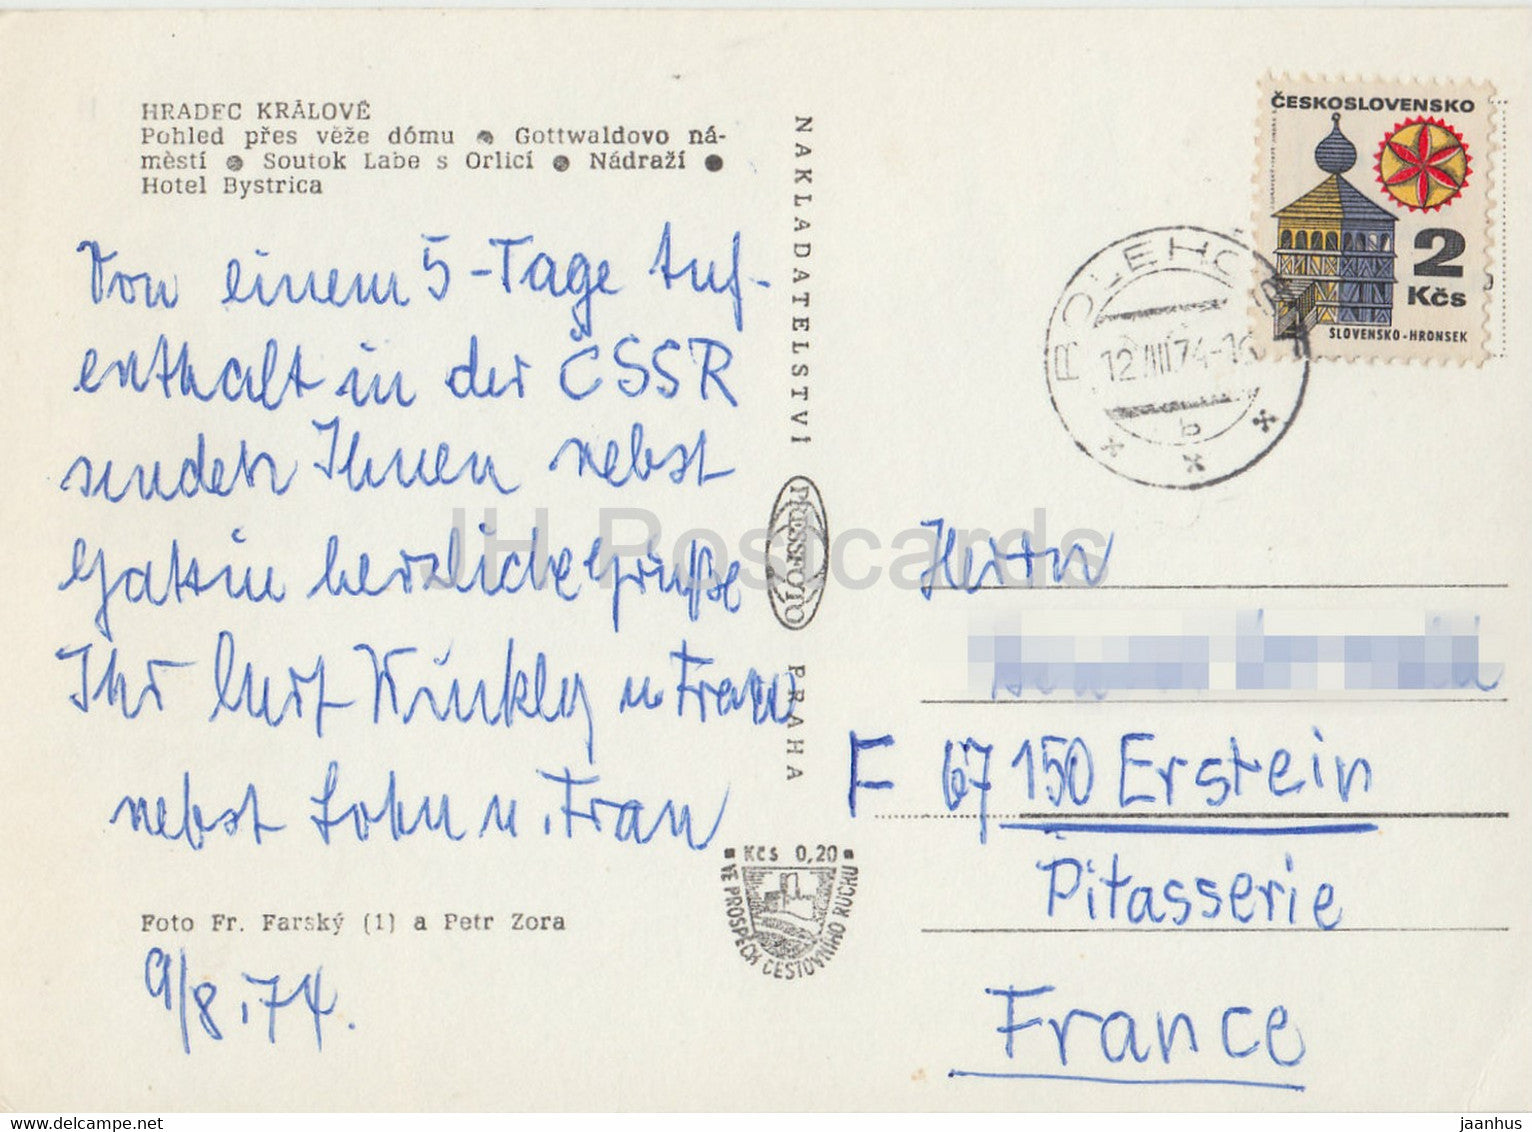 HRADEC KRÁLOVÉ
Pohled přes věže dómu ● Gottwaldovo ná-
městí ● Soutok Labe s Orlicí ● Nádraží ●
Hotel Bystrica
Von einem 5-Tage Auf-
enthalt in der ČSSR
senden Ihnen nebst
Gattin herzliche Grüße
Ihr Kurt Winkler u Frau
nebst Sohn u. Frau
Foto Fr. Farský (1) a Petr Zora
9/8.74.
NAKLADATELSTVÍ
PRESSFOTO
PRAHA
Kčs 0,20
VE PROSPĚCH CESTOVNÍHO RUCHU
ČESKOSLOVENSKO
2
Kčs
SLOVENSKO-HRONSEK
12.VIII.74-16
b
Herrn
F 67150 Erstein
Pitasserie
France
JH Postcards
hippostcard.com
jaanhus